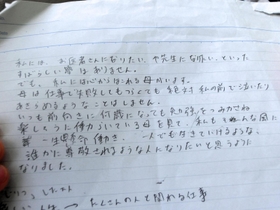 私には、お医者さんになりたい、や先生になりたい、といった
すばらしい夢はありません。
でも、私には心からほこれる母がいます。
母は仕事で失敗してもつらくても絶対私の前で泣いたり
あきらめるようなことはしません。
いつも前向きに何歳になっても勉強をつみかさね
楽しそうに働いている母を見て、私もそんな風に
一生懸命働き、一人でも生きていけるような、
誰かに尊敬されるような人になりたいと思うように
なりました。
たくさんの人と関わる仕事